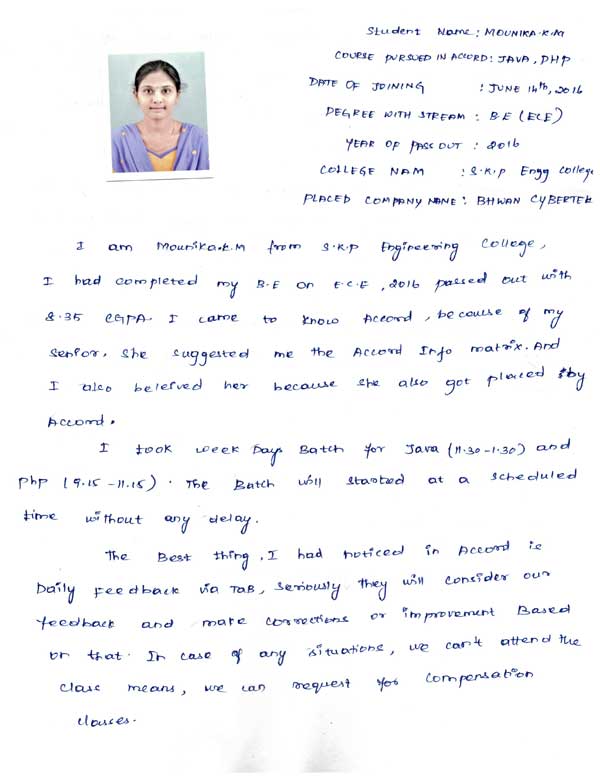 Student Name: MOUNIKA.K.M
COURSE PURSUED IN ACCORD: JAVA, PHP
DATE OF JOINING : JUNE 14th, 2016
DEGREE WITH STREAM : B.E (ECE)
YEAR OF PASS OUT : 2016
COLLEGE NAM : S.K.P Engg College
PLACED COMPANY NAME: BHWAN CYBERTEK
I am Mounika.K.M from S.K.P Engineering College,
I had completed my B.E on E.C.E, 2016 passed out with
8.35 CGPA. I came to know Accord, because of my
senior, she suggested me the Accord Info matrix. And
I also beleived her because she also got placed by
Accord.
I took week Days Batch for Java (11.30-1.30) and
php (9.15-11.15). The Batch will started at a scheduled
time without any delay.
The Best thing, I had noticed in Accord is
Daily Feedback via TaB, seriously they will consider our
feedback and make corrections or improvement Based
on that. In case of any situations, we can't attend the
class means, we can request for compensation
classes.